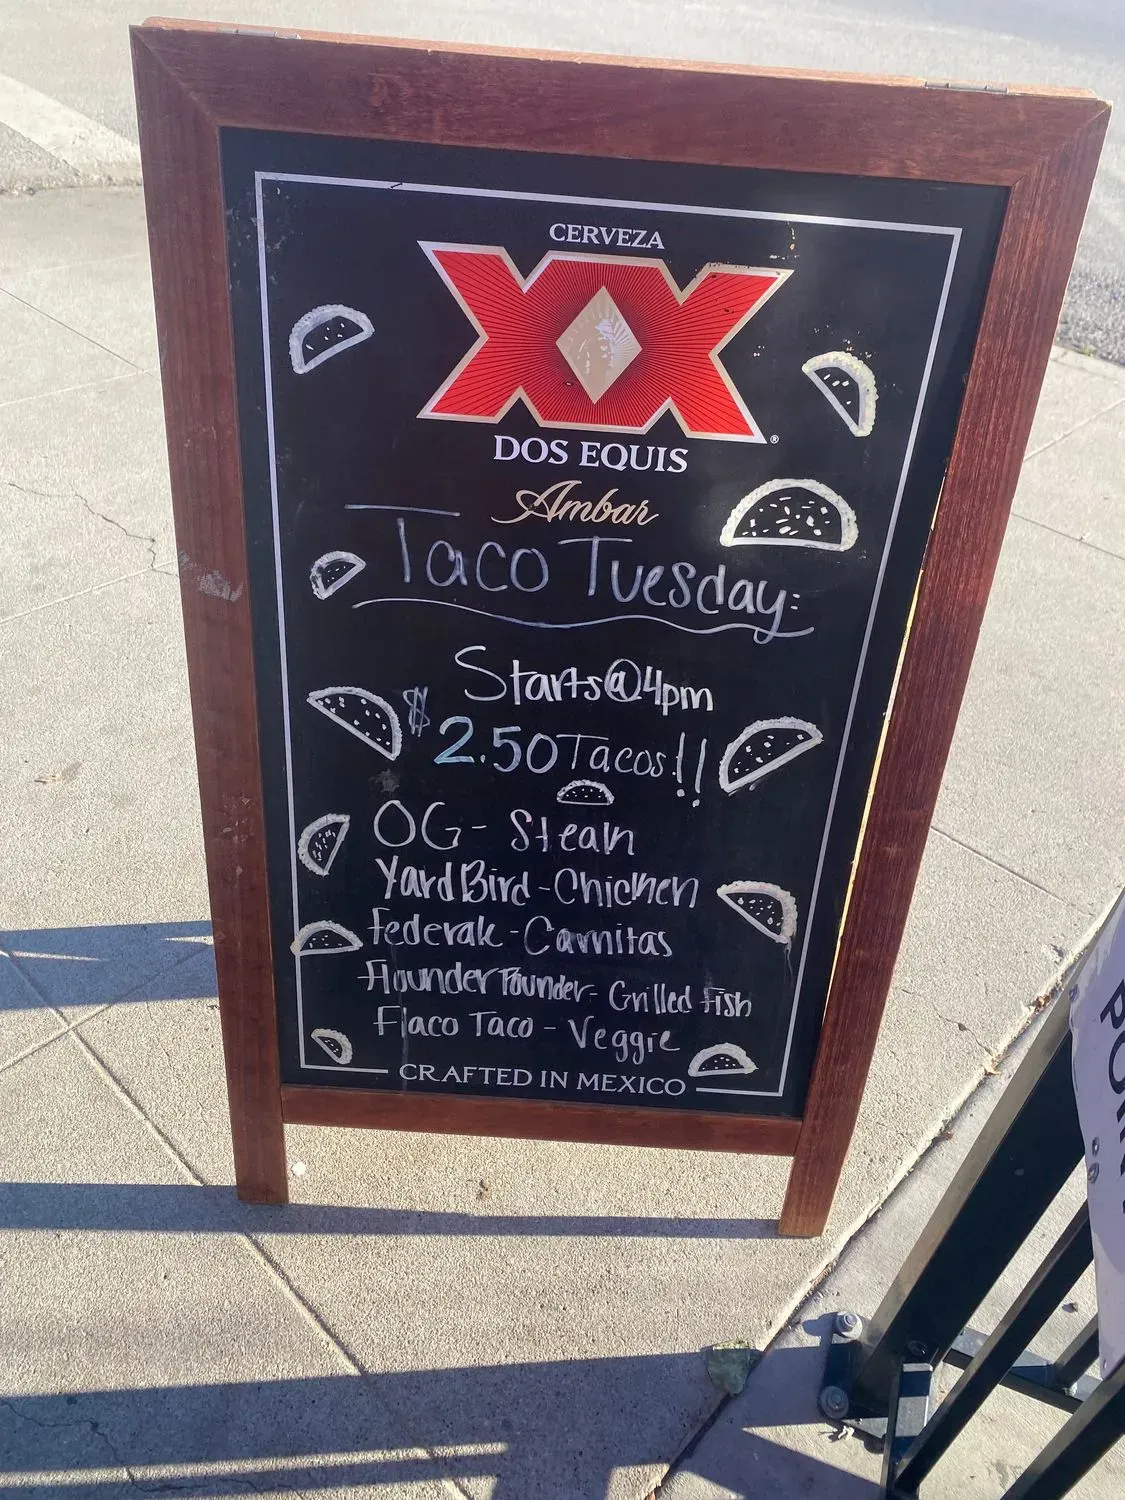 CERVEZA
XX
DOS EQUIS
Ambar
Taco Tuesday:
Starts@4pm
$2.50 Tacos!!
OG- Steak
Yard Bird - Chicken
Federale - Carnitas
Flounder Pounder- Grilled Fish
Flaco Taco - Veggie
CRAFTED IN MEXICO